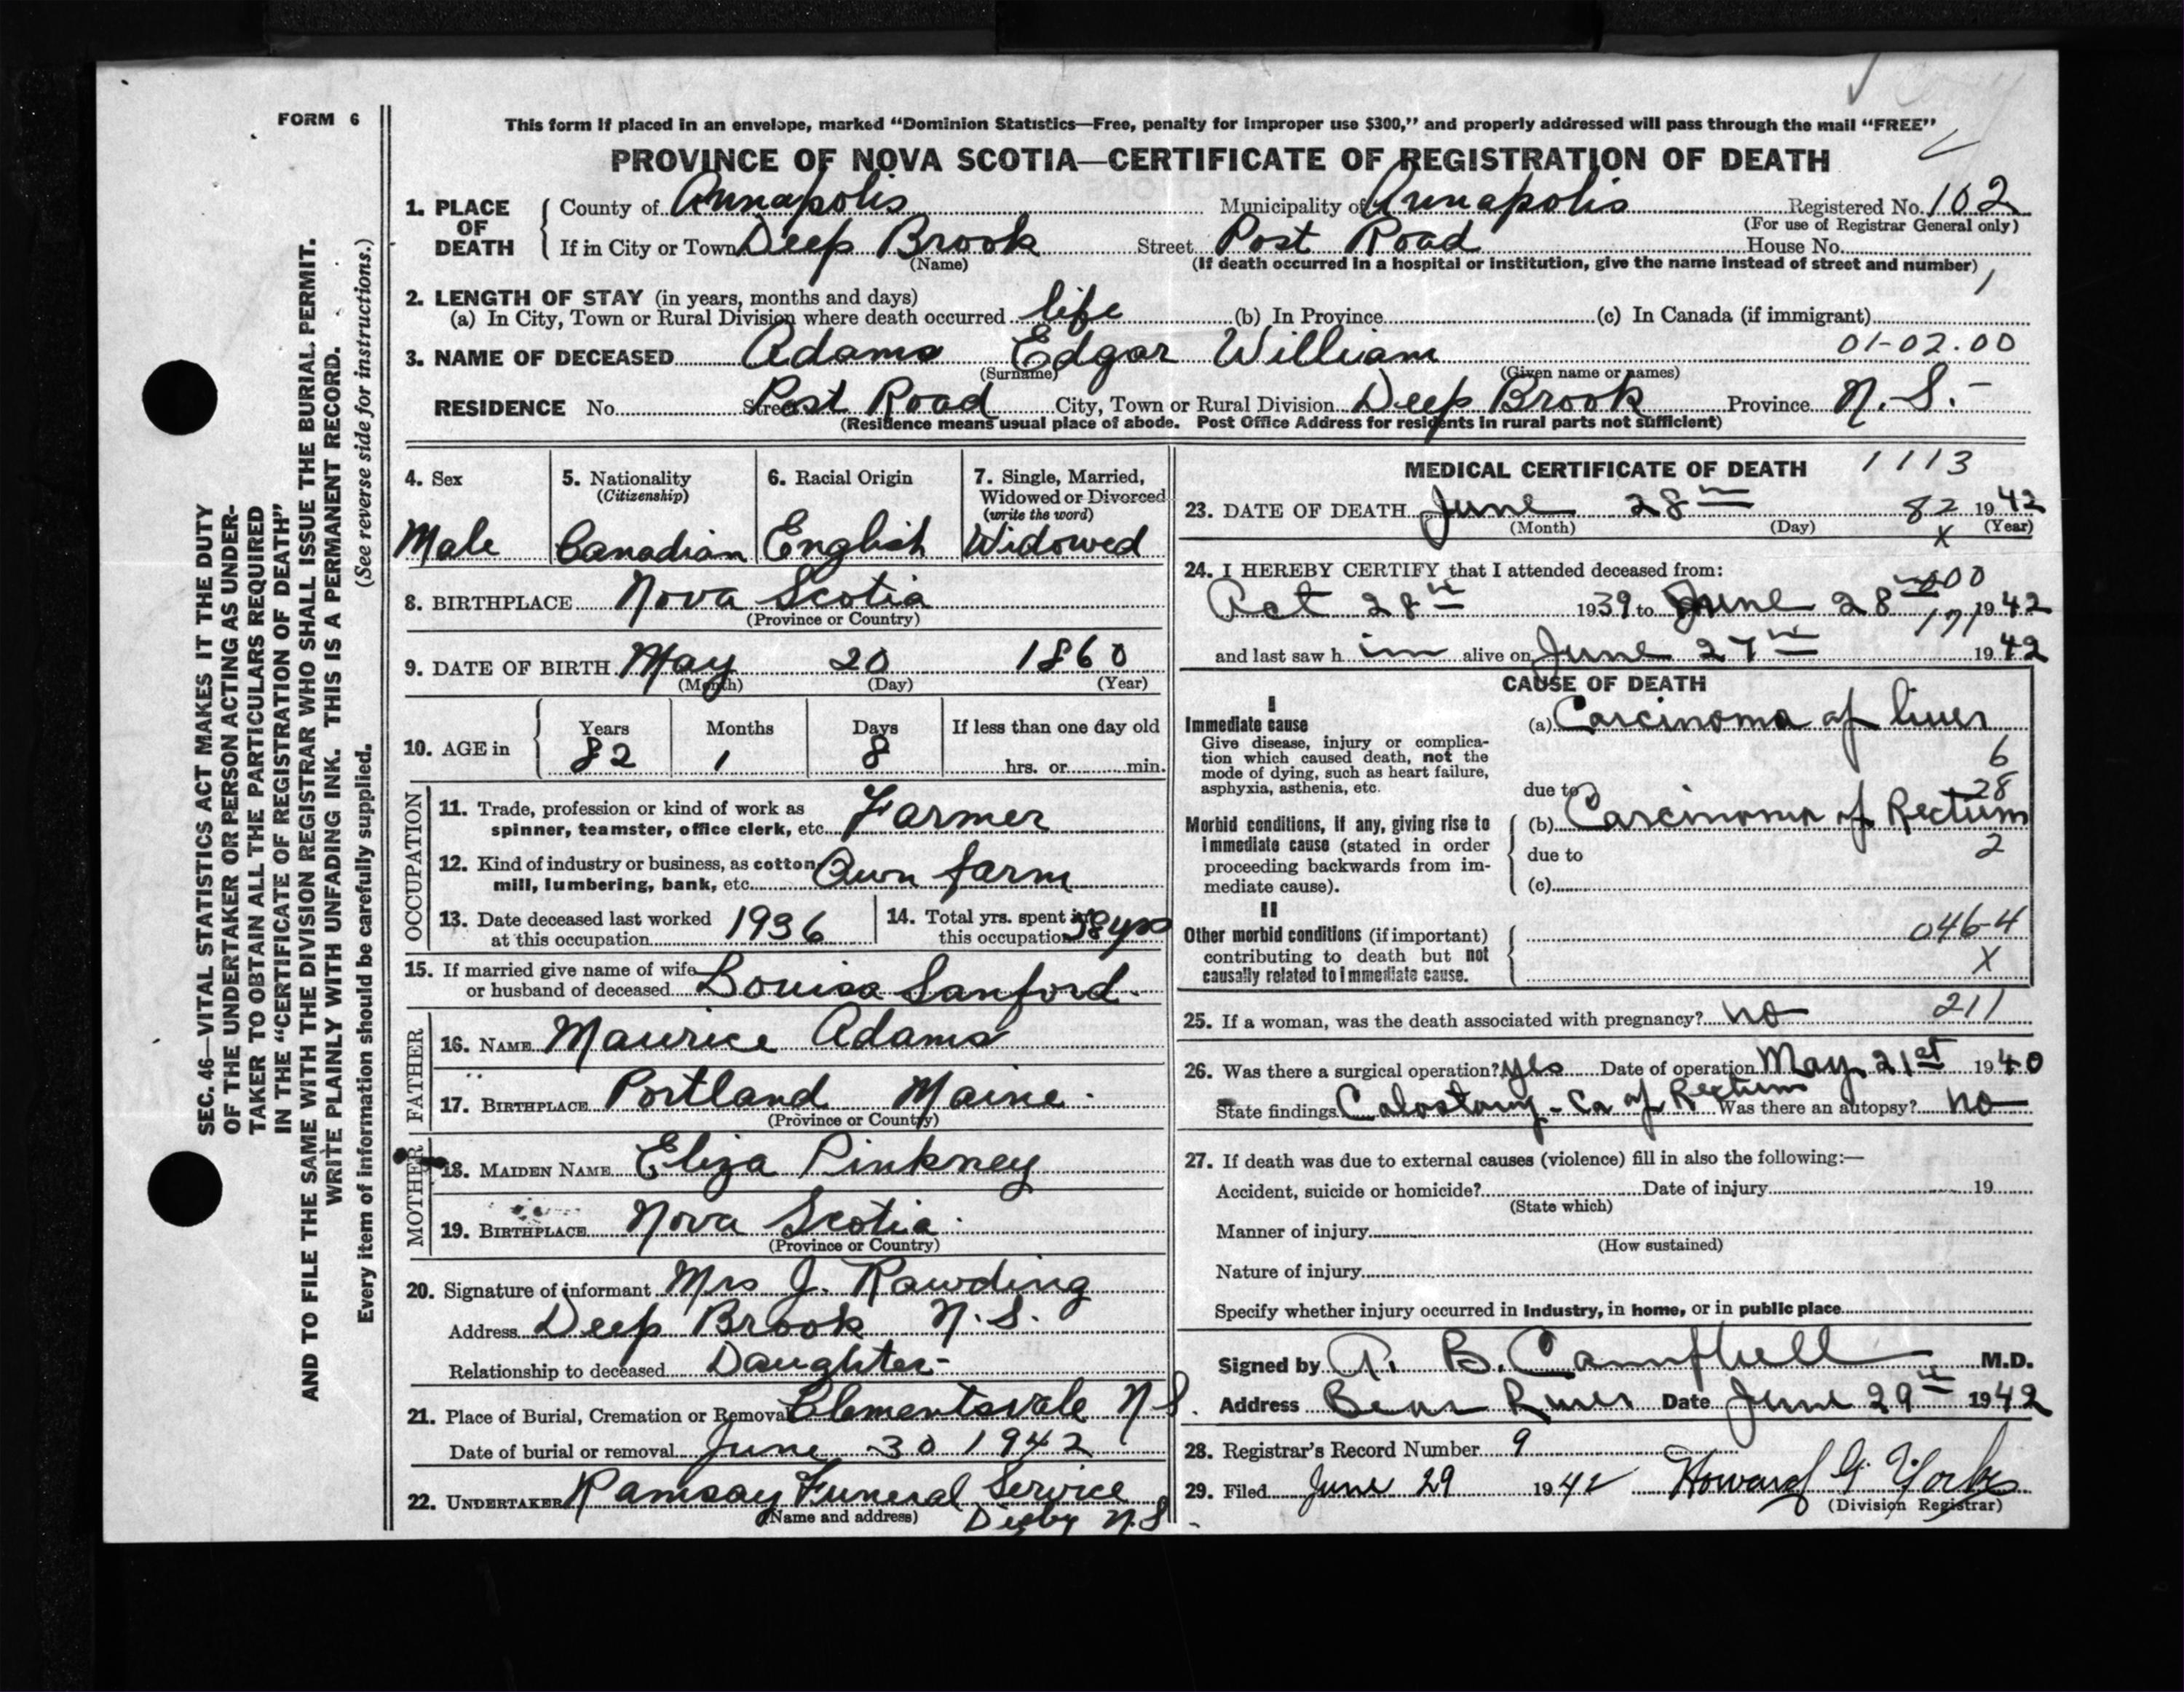 FORM 6
This form if placed in an envelope, marked "Dominion Statistics—Free, penalty for improper use $300," and properly addressed will pass through the mail "FREE"
PROVINCE OF NOVA SCOTIA—CERTIFICATE OF REGISTRATION OF DEATH
1. PLACE OF DEATH County of Annapolis Municipality of Annapolis Registered No. 102
(For use of Registrar General only)
If in City or Town Deep Brook Street Post Road House No.
(Name) (If death occurred in a hospital or institution, give the name instead of street and number)
1
2. LENGTH OF STAY (in years, months and days)
(a) In City, Town or Rural Division where death occurred life (b) In Province (c) In Canada (if immigrant)
3. NAME OF DECEASED Adams Edgar William 01-02.00
(Surname) (Given name or names)
RESIDENCE No. Street Post Road City, Town or Rural Division Deep Brook Province N.S.-
(Residence means usual place of abode. Post Office Address for residents in rural parts not sufficient)
4. Sex
Male
5. Nationality
(Citizenship)
Canadian
6. Racial Origin
English
7. Single, Married,
Widowed or Divorced
(write the word)
Widowed
8. BIRTHPLACE Nova Scotia
(Province or Country)
9. DATE OF BIRTH May 20 1860
(Month) (Day) (Year)
10. AGE in Years Months Days If less than one day old
82 1 8 hrs. or min.
OCCUPATION
11. Trade, profession or kind of work as
spinner, teamster, office clerk, etc. Farmer
12. Kind of industry or business, as cotton
mill, lumbering, bank, etc. Own farm
13. Date deceased last worked
at this occupation 1936
14. Total yrs. spent in
this occupation 58 yrs
15. If married give name of wife
or husband of deceased Louisa Sanford.
FATHER
16. NAME Maurice Adams
17. BIRTHPLACE Portland Maine.
(Province or Country)
MOTHER
18. MAIDEN NAME Eliza Pinkney
19. BIRTHPLACE Nova Scotia.
(Province or Country)
20. Signature of informant Mrs J. Rawding
Address Deep Brook N.S.
Relationship to deceased Daughter-
21. Place of Burial, Cremation or Removal Clementsvale N.S.
Date of burial or removal June 30 1942
22. UNDERTAKER Ramsay Funeral Service
(Name and address) Digby N.S.
MEDICAL CERTIFICATE OF DEATH 1113
23. DATE OF DEATH June 28th 82 1942
(Month) (Day) X (Year)
24. I HEREBY CERTIFY that I attended deceased from:
000
Oct 28th 1939 to June 28th 1942
171
and last saw h im alive on June 27th 1942
CAUSE OF DEATH
I
Immediate cause (a) Carcinoma of liver
Give disease, injury or complica-
tion which caused death, not the
mode of dying, such as heart failure,
asphyxia, asthenia, etc.
6
28
due to
Morbid conditions, if any, giving rise to
immediate cause (stated in order
proceeding backwards from im-
mediate cause).
(b) Carcinoma of Rectum
due to 2
(c)
II
Other morbid conditions (if important)
contributing to death but not
causally related to immediate cause.
046-4
X
25. If a woman, was the death associated with pregnancy? no 211
26. Was there a surgical operation? yes Date of operation May 21st 1940
State findings Colostomy - Ca of Rectum Was there an autopsy? no
27. If death was due to external causes (violence) fill in also the following:—
Accident, suicide or homicide? Date of injury 19
(State which)
Manner of injury
(How sustained)
Nature of injury
Specify whether injury occurred in Industry, in home, or in public place
Signed by A. B. Campbell M.D.
Address Bear River Date June 29th 1942
28. Registrar's Record Number 9
29. Filed June 29 1942 Howard G.
(Division Registrar)
SEC. 46—VITAL STATISTICS ACT MAKES IT THE DUTY
OF THE UNDERTAKER OR PERSON ACTING AS UNDER-
TAKER TO OBTAIN ALL THE PARTICULARS REQUIRED
IN THE "CERTIFICATE OF REGISTRATION OF DEATH"
AND TO FILE THE SAME WITH THE DIVISION REGISTRAR WHO SHALL ISSUE THE BURIAL PERMIT.
WRITE PLAINLY WITH UNFADING INK. THIS IS A PERMANENT RECORD.
Every item of information should be carefully supplied. (See reverse side for instructions.)